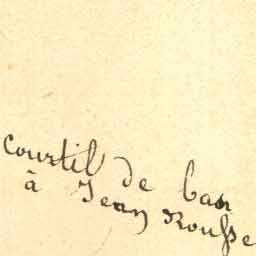 Courtil de bas
à Jean Rousse